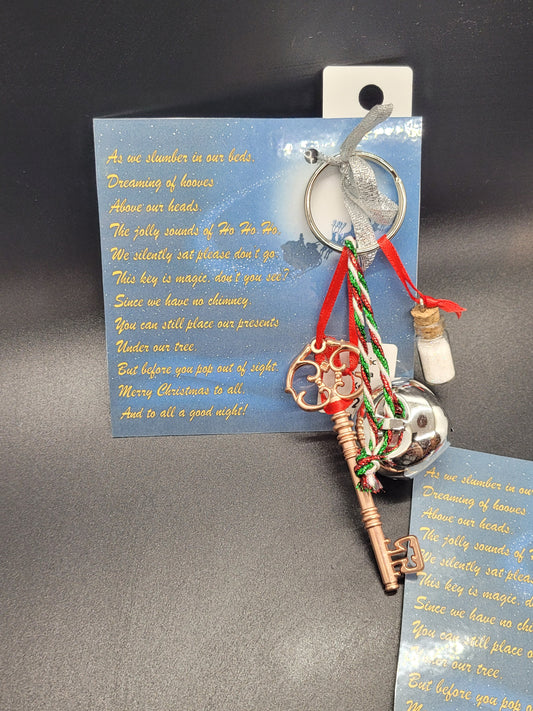 As we slumber in our beds,
Dreaming of hooves
Above our heads.
The jolly sounds of Ho Ho Ho,
We silently sat please don't go.
This key is magic, don't you see?
Since we have no chimney.
You can still place our presents
Under our tree.
But before you pop out of sight,
Merry Christmas to all,
And to all a good night!
As we slumber in our
Dreaming of hooves
Above our heads.
The jolly sounds of
We silently sat pleas
This key is magic, d
Since we have no ch
You can still place o
Under our tree.
But before you pop o